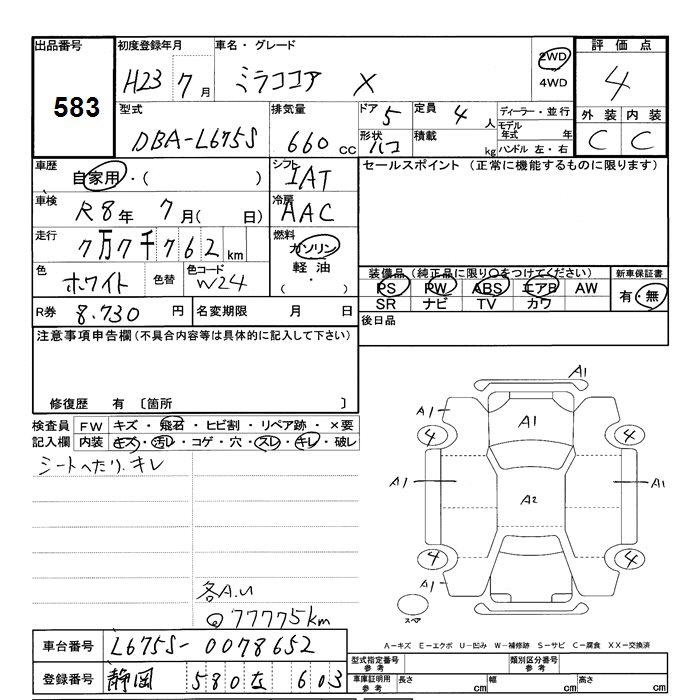 出品番号 初度登録年月 車名・グレード 評価点
583
H23 7月 ミラココア X 2WD 4WD 4
型式 排気量 ドア 5 定員 4人 ディーラー・並行 外装 内装
DBA-L675S 660cc 形状 ハコ 積載 kg モデル年式 年 C C
ハンドル 左・右
車歴 自家用・( ) シフト IAT セールスポイント (正常に機能するものに限ります)
車検 R8年 7月( 日) 冷房 AAC
走行 7万7千762km 燃料 ガソリン・軽油・( )
色 ホワイト 色替 色コード W24 装備品(純正品に限り○をつけてください) 新車保証書
PS PW ABS エアB AW 有・無
SR ナビ TV カワ
R券 8.730円 名変期限 月 日 後日品
注意事項申告欄(不具合内容等は具体的に記入して下さい)
修復歴 有 〔箇所 〕
検査員 FW キズ・飛石・ヒビ割・リペア跡・×要
記入欄 内装 キズ・汚レ・コゲ・穴・スレ・キレ・破レ
シートへたり、キレ
A1
A1 A1
4 4
A1 A1
A2
4 4
A1
スペア
各A.U
@77775km
A-キズ E-エクボ U-凹み W-補修跡 S-サビ C-腐食 XX-交換済
車台番号 L675S-0078652
型式指定番号 参考 類別区分番号 参考
登録番号 静岡 580 603
車庫証明用 参考 長さ cm 幅 cm 高さ cm